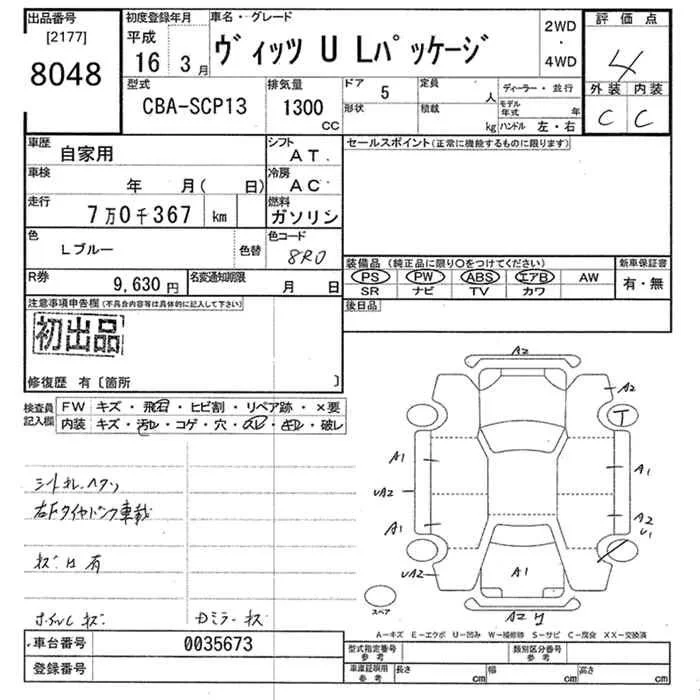 出品番号
[2177]
8048
初度登録年月
平成
16 3月
車名・グレード
ヴィッツ U Lパッケージ
2WD
・
4WD
評価点
4
外装 内装
C C
型式
CBA-SCP13
排気量
1300
CC
ドア 5
形状
定員 人
積載 kg
ディーラー・並行
モデル年式 年
ハンドル 左・右
車歴
自家用
シフト
AT.
車検
年 月( 日)
冷房
AC
走行
7万0千367 km
燃料
ガソリン
色
Lブルー
色替
色コード
8R0
R券
9,630円
名変通知期限
月 日
セールスポイント(正常に機能するものに限ります)
装備品(純正品に限り○をつけてください)
PS PW ABS エアB AW
SR ナビ TV カワ
新車保証書
有・無
後日品
注意事項申告欄(不具合内容等は具体的に記入して下さい)
初出品
修復歴 有〔箇所 〕
検査員
記入欄
FW キズ・飛石・ヒビ割・リペア跡・×要
内装 キズ・汚レ・コゲ・穴・スレ・キレ・破レ
シートスレ、ヘタリ
右Fタイヤパンク車載
キズ凹有
ホイルCキズ
Dミラーキズ
A2
A2
T
A1
A1
UA2
A2
U1
A1
UA2
A1
A2
スペア
A−キズ E−エクボ U−凹み W−補修跡 S−サビ C−腐食 XX−交換済
車台番号
0035673
登録番号
型式指定番号
参考
類別区分番号
参考
車庫証明用
参考
長さ cm
幅 cm
高さ cm